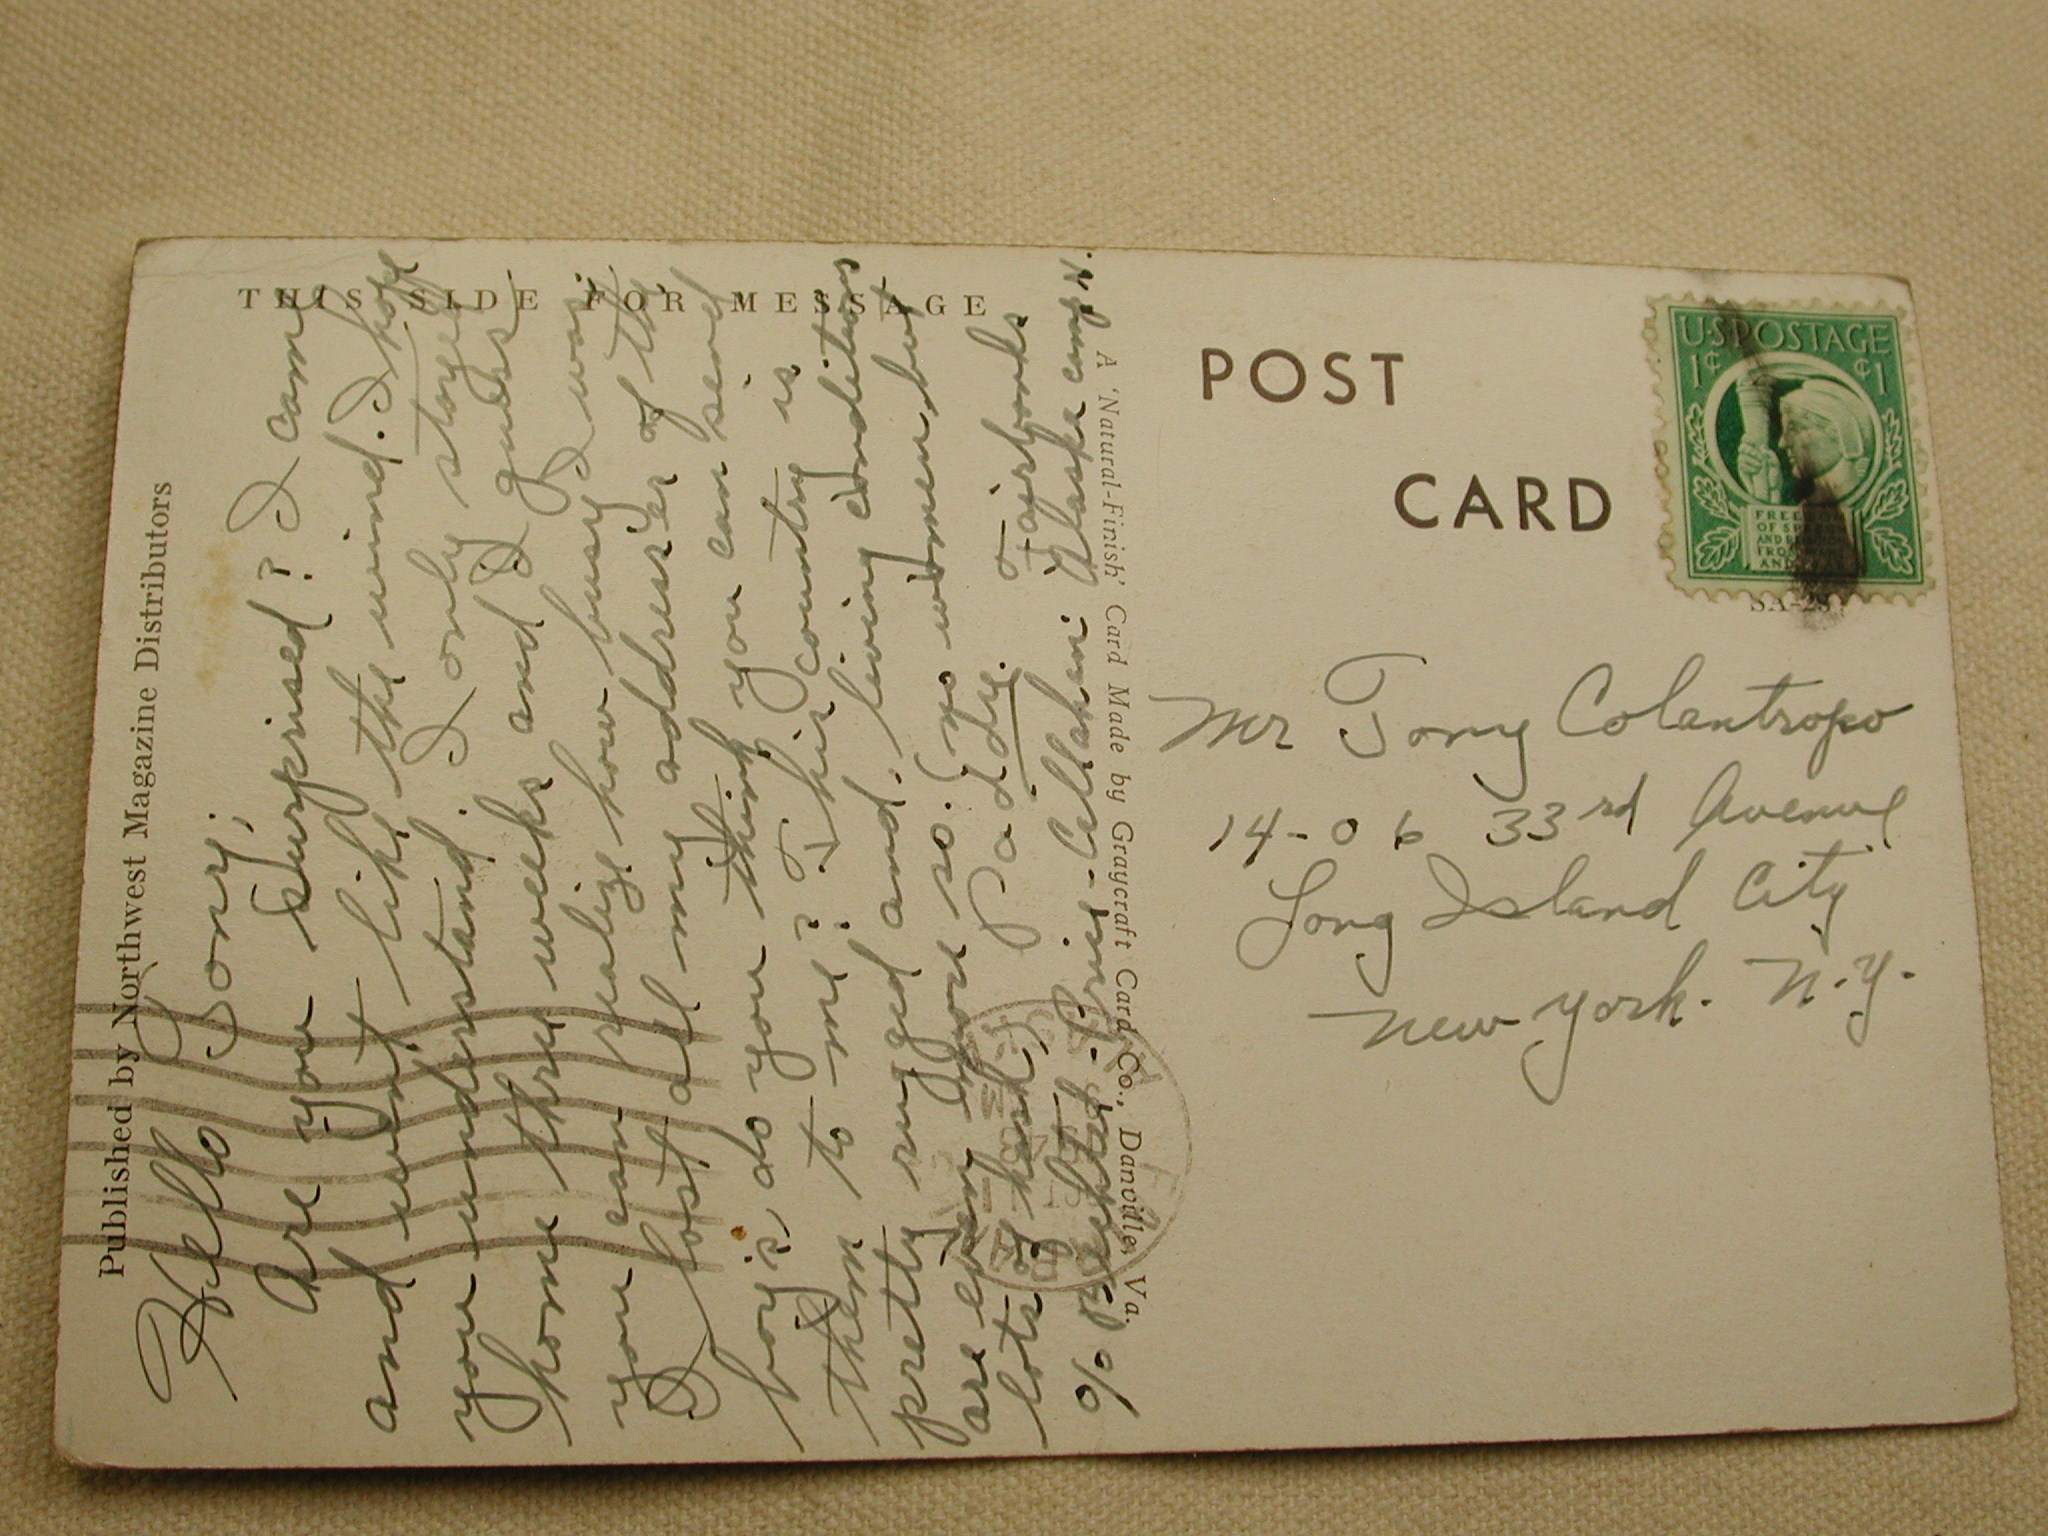 Published by Northwest Magazine Distributors
THIS SIDE FOR MESSAGE
Hello Tony;
Are you surprised? I came
and went like the wind. I hope
you understand. I only stoyed
home three weeks and I guess
you can realize how busy I was.
I lost all my address'es of the
boy's, do you think you can send
them to me? This country is
pretty rugged and, living conditions
are even more so. (no women, but
lots of
Paddy.
Fairbanks
% Bechtel-Price-Callahan: Alaska
A 'Natural-Finish' Card Made by Graycraft Card Co., Danville, Va.
POST
CARD
U·S·POSTAGE
1¢ ¢1
FREEDOM
OF SPEECH
AND RELIGION
FROM WANT
AND FEAR
SA-28
Mr Tony Colantropo
14-06 33rd Avenue
Long Island City
New York. N.Y.